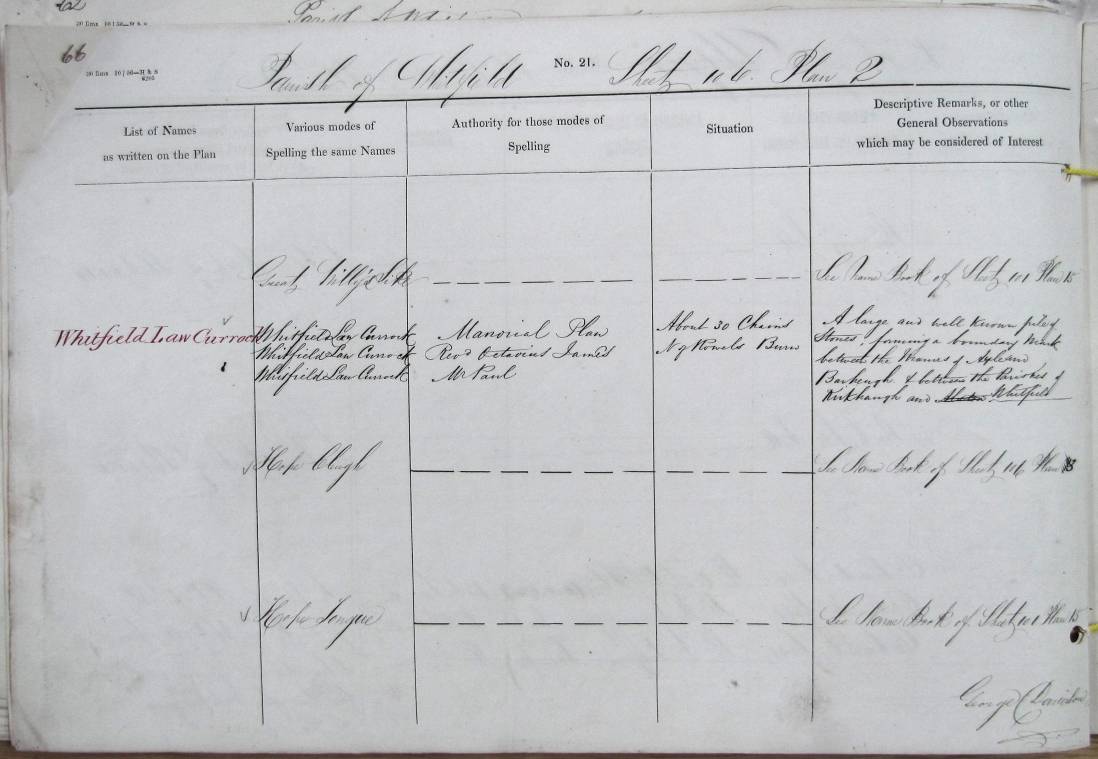 62
20 Rms
Parish
66
20 Rms 20 | 56—H & S
6205
Parish of Whitfield No. 21. Sheet 106. Plan 2
List of Names
as written on the Plan
Various modes of
Spelling the same Names
Authority for those modes of
Spelling
Situation
Descriptive Remarks, or other
General Observations
which may be considered of Interest
Great Willy's Sike See Name Book of Sheet 101 Plan 15
Whitfield Law Currock
Whitfield Law Currock
Whitfield Law Currock
Whitfield Law Currock
Manorial Plan
Revd Octavius James
Mr Paul
About 30 Chains
N of Rowels Burn
A large and well known pile of
Stones, forming a boundary Mark
between the Manors of Ayle and
Barhaugh & between the Parishes of
Kirkhaugh and Whitfield
Hope Cleugh See Name Book of Sheet 106 Plan 3
Hope Tongue See Name Book of Sheet 101 Plan 15
George Davidson